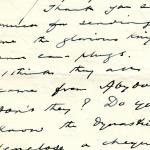 Thank you s
for sending
me the glorious
plugs.
I think they are
come from Abydo
they? Do yo
know the Dynasti
enclose a cheque